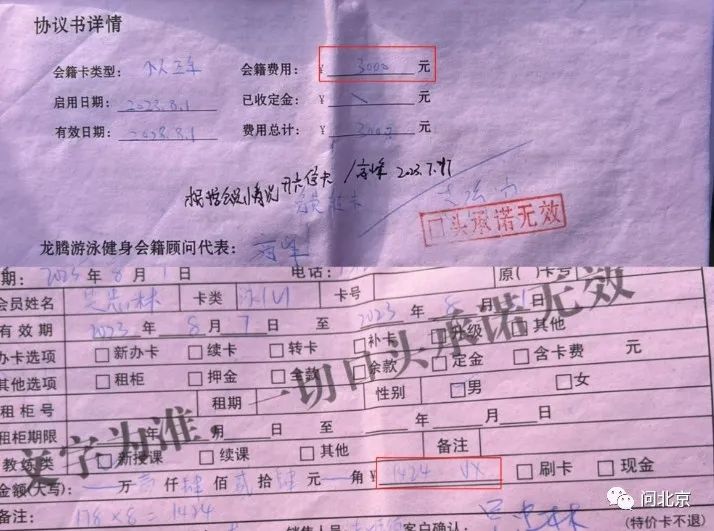 协议书详情
会籍卡类型: 会籍费用: ¥ 3000 元
启用日期: 2023.8.1 已收定金: ¥ 元
有效日期: 2028.8.1 费用总计: ¥ 3000 元
2023.7.
口头承诺无效
龙腾游泳健身会籍顾问代表:
期: 2023 年 8 月 1 日 电话: 原( )卡号
会员姓名 卡类 卡号
有效期 2023 年 8 月 7 日 至 2023 年 8 月 日
办卡选项 □新办卡 □续卡 □转卡 □补卡 □升级 □其他
其他选项 □租柜 □押金 □全款 □余款 □定金 □含卡费 元
租柜号 租期 性别 □男 □女
租柜期限 年 月 日 至 年 月 日
教练类 □新授课 □续课 □其他 备注
金额(大写): 万 壹 仟 肆 佰 贰 拾 肆 元 角 ¥ 1424 VX □刷卡 □现金
178×8=1424
文字为准,一切口头承诺无效
销售人员 客户确认: (特价卡不退)
问北京